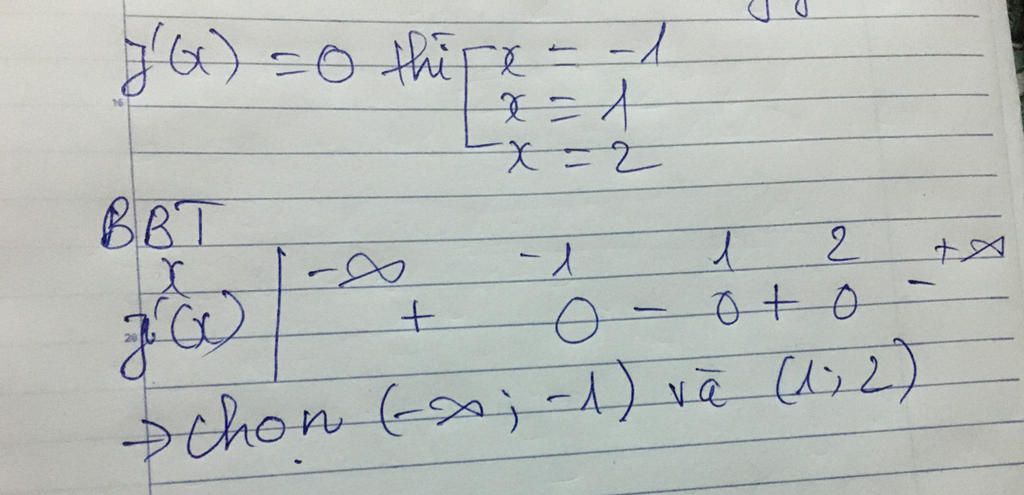 f'(x) = 0 thì [ x = -1
x = 1
x = 2
BBT
x | -∞ -1 1 2 +∞
f'(x) | + 0 - 0 + 0 -
→ chọn (-∞; -1) và (1; 2)